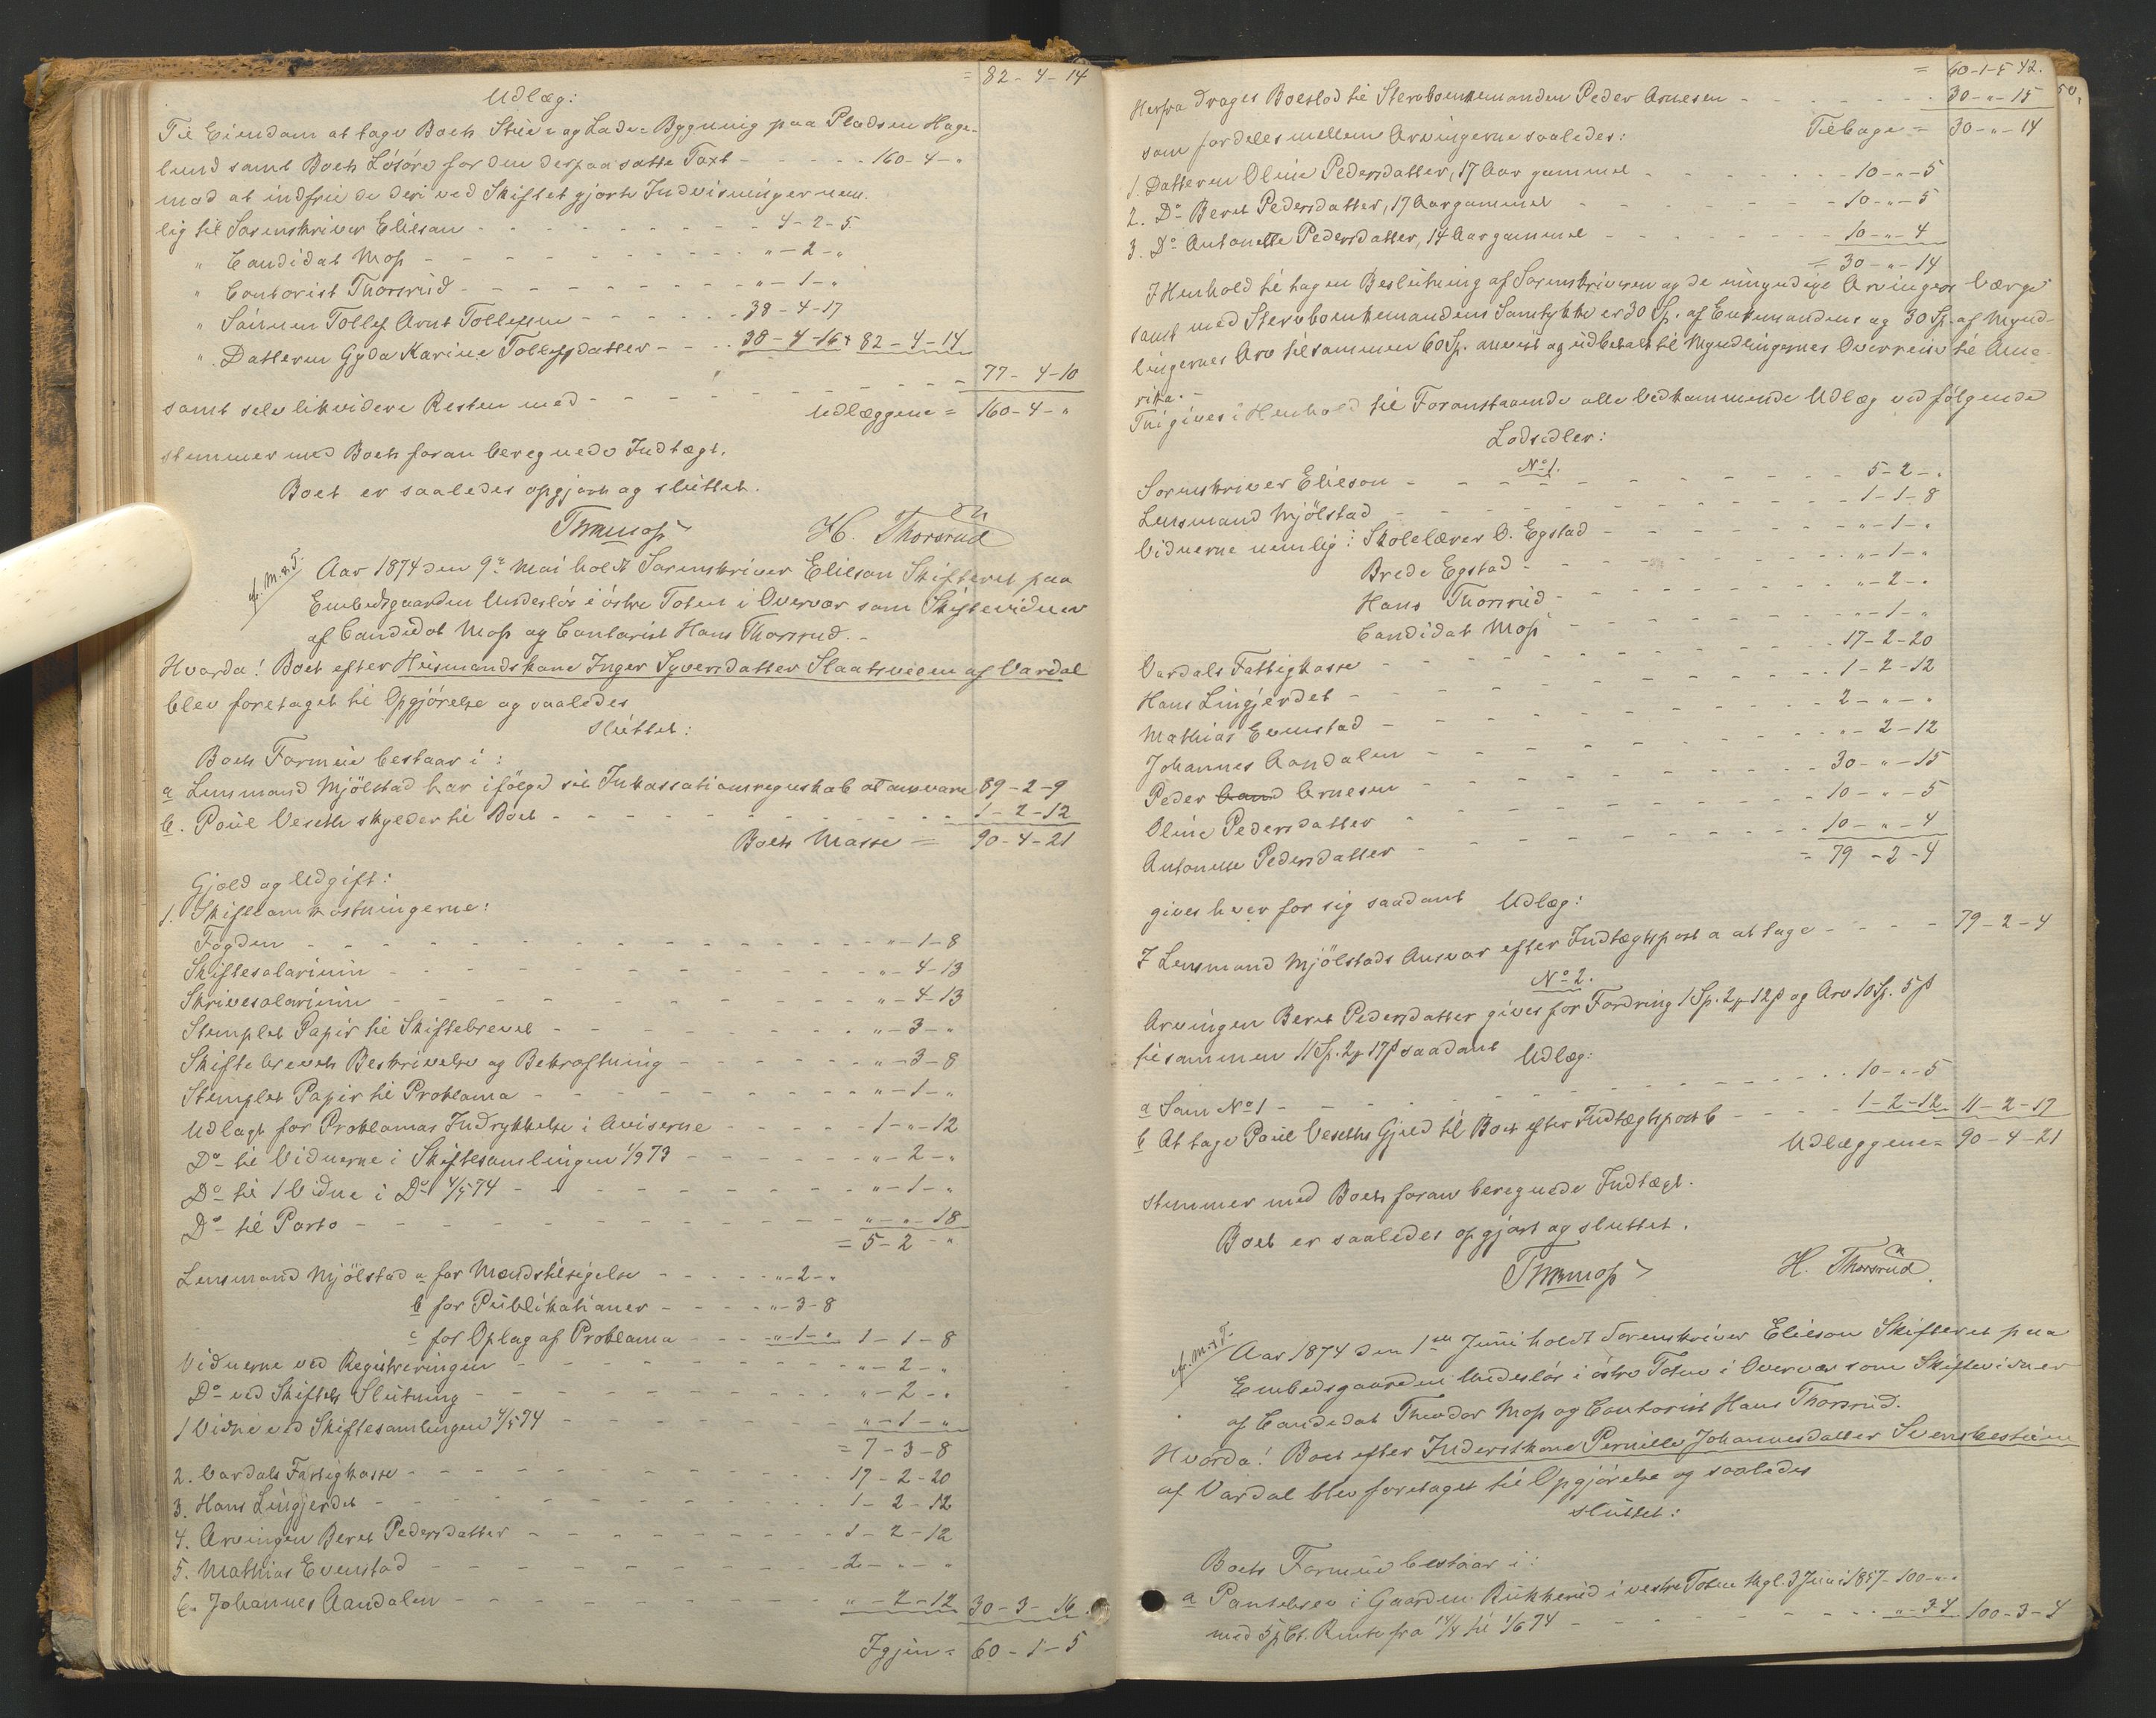 = 82 - 4 - 14
Udlæg:
Til Eiendom at tage Boets Stue- og Lade-Bygning paa Pladsen Hage-
lund samt Boets Løsøre for den derpaa satte Taxt - - - - 160 - 4 - "
mod at indfrie de deri ved Skiftet gjorte Indvisninger nem-
lig til Sorenskriver Elieson - - - - 4 - 2 - 5
" Candidat Moss - - - - " - 2 - "
" Contorist Thorsrud - - - - " - 1 - "
" Sønnen Tollef Arnt Tollefsen - - - - 38 - 4 - 17
" Datteren Gyda Karine Tollefsdatter - - - 38 - 4 - 16 + 82 - 4 - 14
samt selv likvidere Resten med - - - - 77 - 4 - 10
Udlæggene = 160 - 4 - "
stemmer med Boets foran beregnede Indtægt.
Boet er saaledes opgjort og sluttet.
Thrmoss H. Thorsrud
Aar 1874 den 9de Mai holdt Sorenskriver Elieson Skifteret paa
Embedsgaarden Underlös i östre Toten i Overvær som Skiftevidner
af Candidat Moss og Contorist Hans Thorsrud. -
Hvorda! Boet efter Husmandskone Inger Syversdatter Slaatsveen af Vardal
blev foretaget til Opgjörelse og saaledes
sluttet:
Boets Formue bestaar i:
a Lensmand Mjölstad har ifölge sit Inkassationsregnskab at ansvare 89 - 2 - 9
b. Poul Veseth skylder til Boet - - - - 1 - 2 - 12
Boets Masse = 90 - 4 - 21
Gjæld og Udgift:
1. Skifteomkostningerne:
Fogden - - - - " - 1 - 8
Skiftesalarium - - - - " - 4 - 13
Skrivesalarium - - - - " - 4 - 13
Stemplet Papir til Skiftebrevet - - - - " - 3 - "
Skiftebrevets Beskrivelse og Bekræftning - - - - " - 3 - 8
Stemplet Papir til Proklama - - - - " - 1 - "
Udlagt for Proklamas Indrykkelse i Aviserne - - - - 1 - " - 12
Do til Vidnerne i Skiftesamlingen 1/9 73 - - - - " - 2 - "
Do til 1 Vidne i Do 4/5 74 - - - - " - 1 - "
Do til Porto - - - - " - " - 18
= 5 - 2 - "
Lensmand Mjölstad a for Mandstilsigelse - - - - " - 2 - "
b for Publikationer - - - - " - 3 - 8
c for Oplag af Proklama - - - " - 1 - " 1 - 1 - 8
Vidnerne ved Registreringen - - - - " - 2 - "
Do ved Skiftets Slutning - - - - " - 2 - "
1 Vidne ved Skiftesamlingen 4/5 74 - - - - " - 1 - "
= 7 - 3 - 8
2. Vardals Fattigkasse - - - - 17 - 2 - 20
3. Hans Lingjerdet - - - - 1 - 2 - 12
4. Arvingen Beret Pedersdatter - - - - 1 - 2 - 12
5. Mathias Evenstad - - - - 2 - " - "
6. Johannes Aandalen - - - - " - 2 - 12 30 - 3 - 16.
Igjen = 60 - 1 - 5
= 60 - 1 - 5 42.
50.
Herfra drages Boeslod til Stervboenkemanden Peder Arnesen - - - - 30 - " - 15
Tilbage = 30 - " - 14
som fordeles mellem Arvingerne saaledes:
1. Datteren Oline Pedersdatter, 17 Aar gammel - - - - 10 - " - 5
2. Do Beret Pedersdatter, 17 Aar gammel - - - - 10 - " - 5
3. Do Antonette Pedersdatter, 14 Aar gammel - - - - 10 - " - 4
= 30 - " - 14
I Henhold til tagen Beslutning af Sorenskriveren og de umyndige Arvingers Værge
samt med Stervboenkemandens Samtykke er 30 Sp. af Enkemandens og 30 Sp. af Mynd-
lingernes Arv tilsammen 60 Sp. anvist og udbetalt til Myndlingernes Overreise til Ame-
rika. -
Thi gives i Henhold til Foranstaaende alle Vedkommende Udlæg ved fölgende
Lodsedler:
No 1.
Sorenskriver Elieson - - - - 5 - 2 - "
Lensmand Mjölstad - - - - 1 - 1 - 8
Vidnerne nemlig: Skolelærer O. Egstad - - - - " - 1 - "
Brede Egstad - - - - " - 1 - "
Hans Thorsrud - - - - " - 2 - "
Candidat Moss - - - - " - 1 - "
Vardals Fattigkasse - - - - 17 - 2 - 20
Hans Lingjerdet - - - - 1 - 2 - 12
Mathias Evenstad - - - - 2 - " - "
Johannes Aandalen - - - - " - 2 - 12
Peder Arnesen - - - - 30 - " - 15
Oline Pedersdatter - - - - 10 - " - 5
Antonette Pedersdatter - - - - 10 - " - 4
= 79 - 2 - 4
gives hver for sig saadant Udlæg:
I Lensmand Mjölstads Ansvar efter Indtægtspost a at tage - - - - 79 - 2 - 4
No 2.
Arvingen Beret Pedersdatter gives for Fordring 1 Sp. 2 ƒ 12 ß og Arv 10 Sp. 5 ß
tilsammen 11 Sp. 2 ƒ 17 ß saadant Udlæg:
a Som No 1 - - - - 10 - " - 5
b At tage Poul Veseths Gjæld til Boet efter Indtægtspost b - - - - 1 - 2 - 12 11 - 2 - 17
Udlæggene = 90 - 4 - 21
stemmer med Boets foran beregnede Indtægt.
Boet er saaledes opgjort og sluttet.
Thrmoss H. Thorsrud.
Aar 1874 den 1ste Juni holdt Sorenskriver Elieson Skifteret paa
Embedsgaarden Underlös i östre Toten i Overvær som Skiftevidner
af Candidat Theodor Moss og Contorist Hans Thorsrud.
Hvorda! Boet efter Inderstkone Pernille Johannesdatter Svensbestuen
af Vardal blev foretaget til Opgjörelse og saaledes
sluttet:
Boets Formue bestaar i:
a Pantebrev i Gaarden Rukkerud i vestre Toten thgl. 3 Juni 1857 - 100 - " - "
med 5 pCt. Rente fra 14/4 til 1/6 74 - - - - " - 3 - 4 100 - 3 - 4